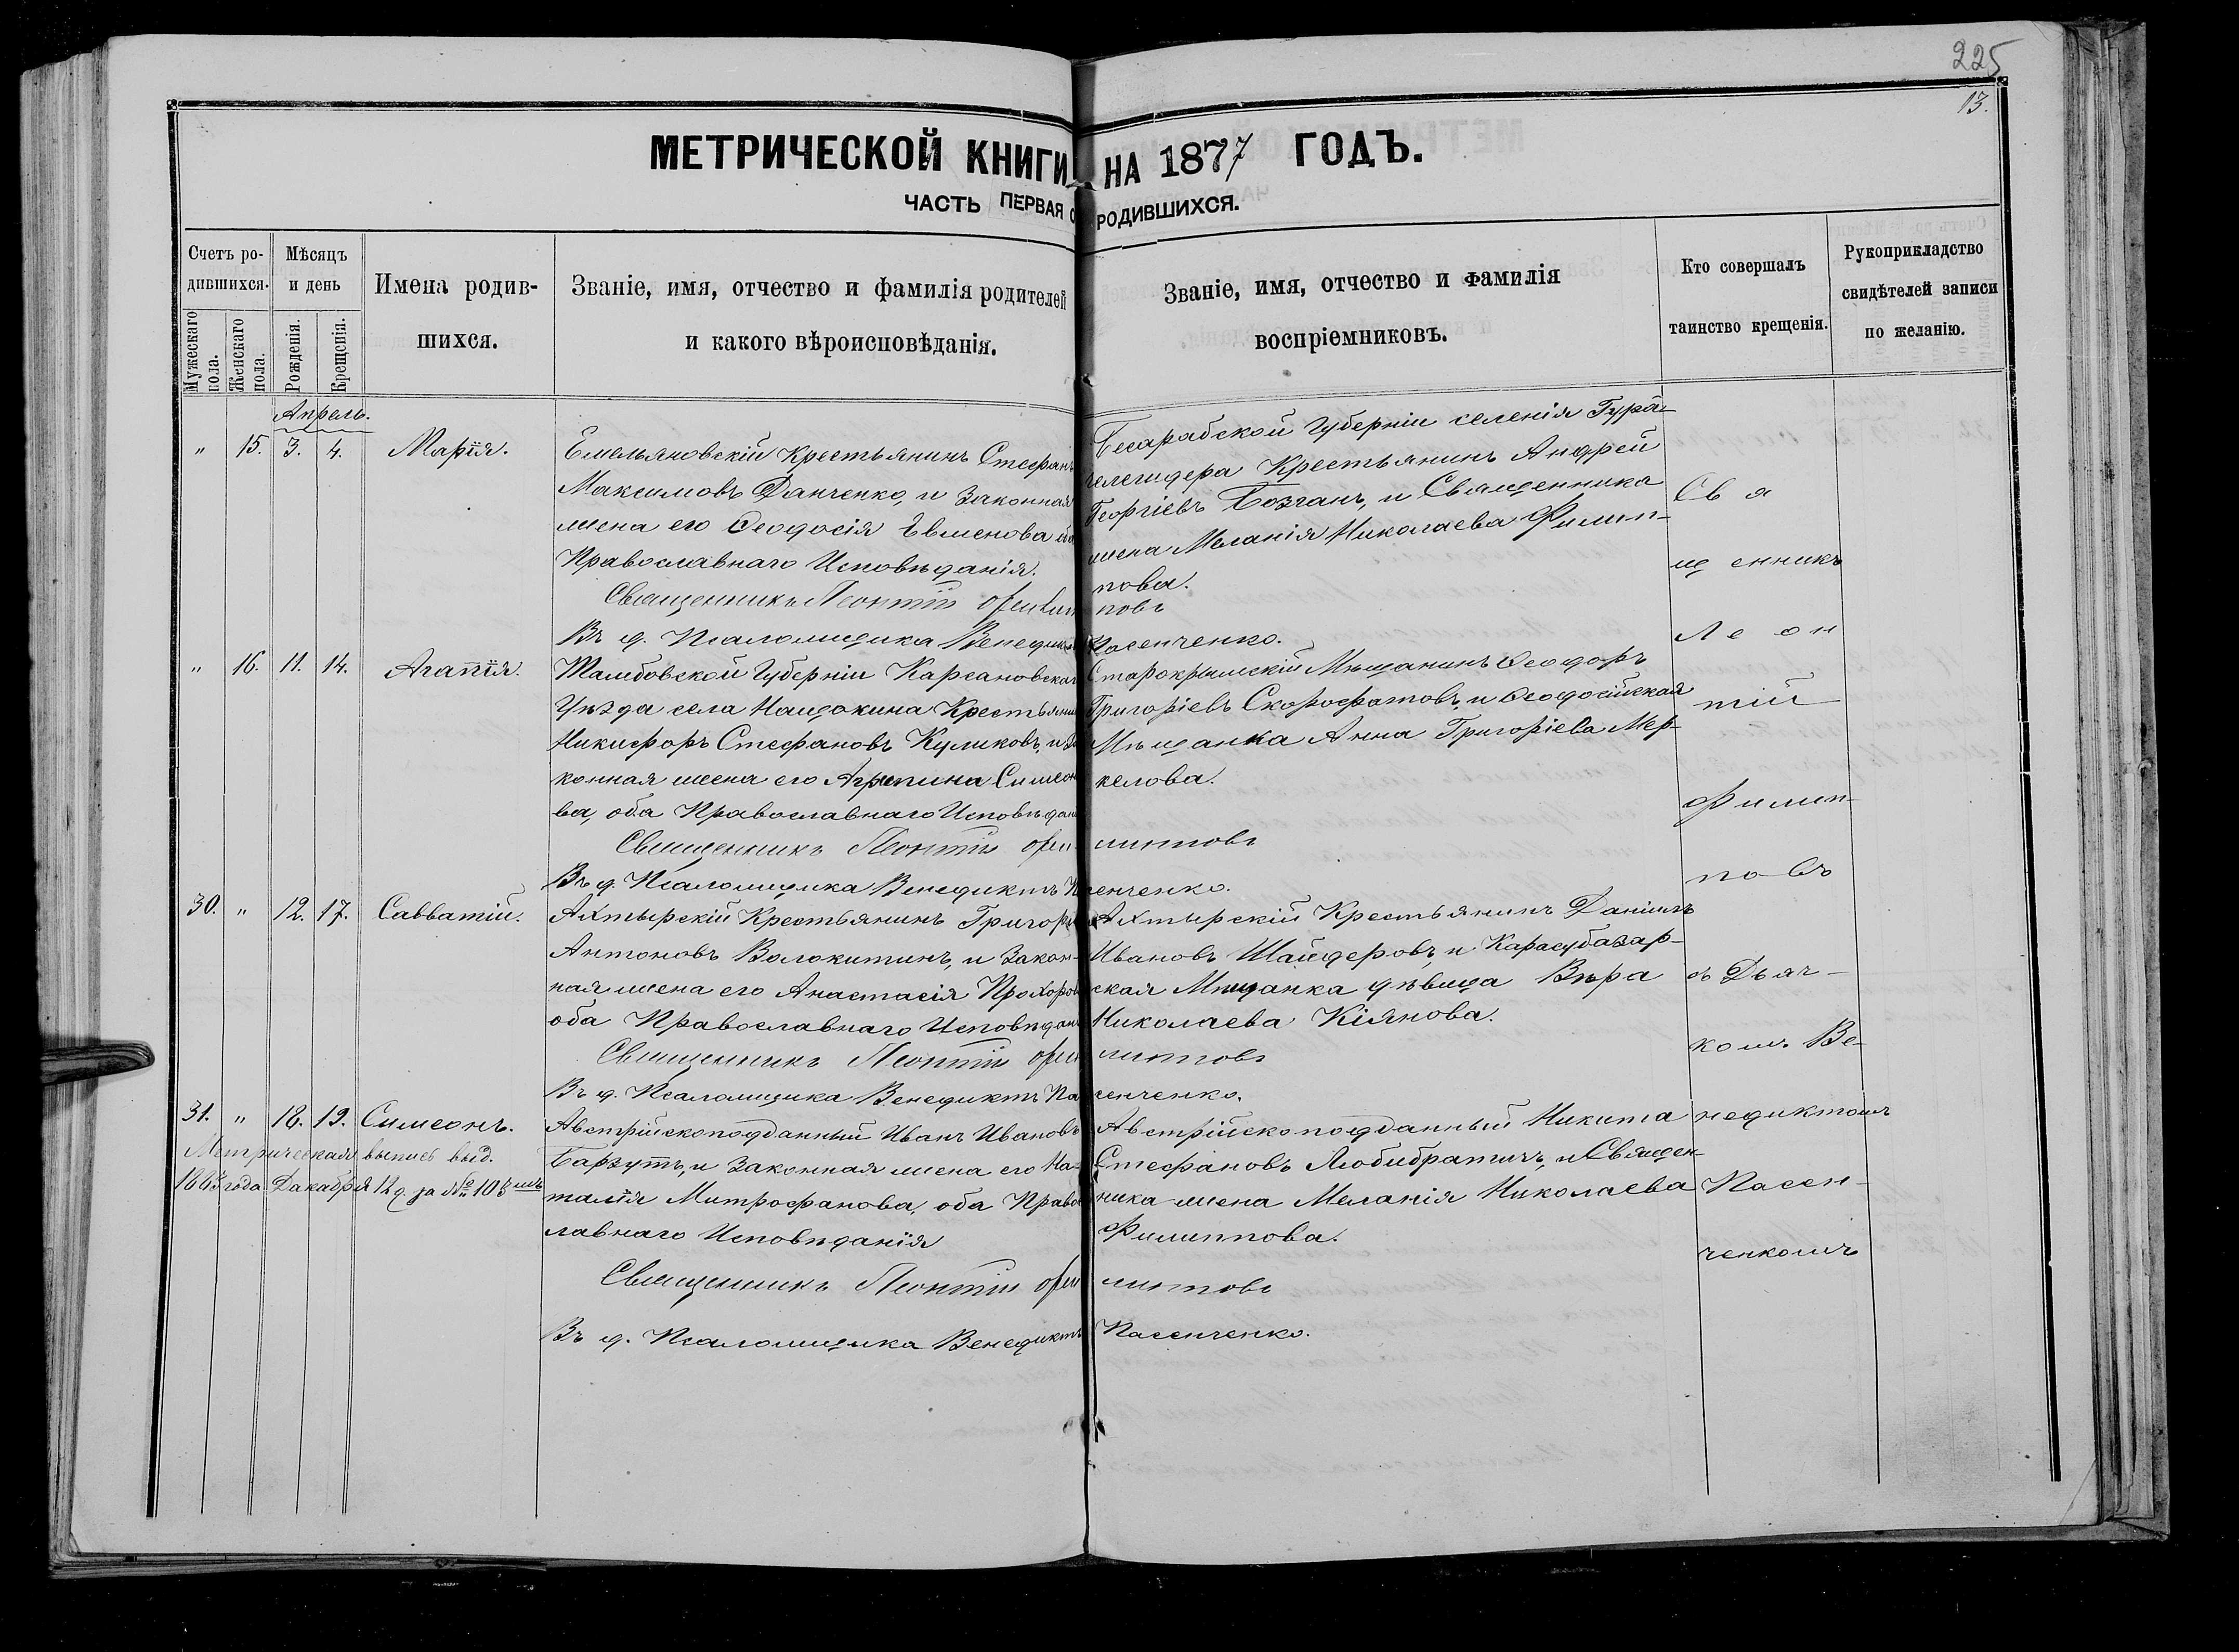 225
13.
МЕТРИЧЕСКОЙ КНИГИ НА 1877 ГОДЪ.
ЧАСТЬ ПЕРВАЯ О РОДИВШИХСЯ.
Счетъ ро-
дившихся.
Мужескаго пола.
Женскаго пола.
Мѣсяцъ
и день
Рожденія.
Крещенія.
Имена родив-
шихся.
Званіе, имя, отчество и фамилія родителей
и какого вѣроисповѣданія.
Званіе, имя, отчество и фамилія
воспріемниковъ.
Кто совершалъ
таинство крещенія.
Рукоприкладство
свидѣтелей записи
по желанію.
Апрель.
" 15. 3. 4. Марія.
Емельяновскій Крестьянинъ Стефанъ
Максимовъ Данченко, и законная
жена его Ѳеодосія Евменова
Православнаго Исповѣданія.
Священникъ Леонтій Филип
Въ д. Псаломщика Венедиктъ
Бесарабской Губерніи селенія Гура-
Крестьянинъ Андрей
Георгіевъ Бозганъ, и Священника
жена Меланія Николаева Филип-
пова.
повъ
Пасенченко.
" 16. 11. 14. Агапія.
Тамбовской Губерніи Карсановскаго
Уѣзда села Нащокина Крестьянинъ
Никифоръ Стефановъ Куликовъ, и За
конная жена его Агрипина Симеон
ва, оба Православнаго Исповѣдан
Священникъ Леонтій Фи
Въ д. Псаломщика Венедиктъ Па
Старокрымскій Мѣщанинъ Ѳеодоръ
Григоріевъ Скорофатовъ, и Ѳеодосійская
Мѣщанка Анна Григоріева Мер-
келова.
липповъ
сенченко.
30. " 12. 17. Савватій.
Ахтырскій Крестьянинъ Григорій
Антоновъ Волокитинъ, и Закон-
ная жена его Анастасія Прохоров
оба Православнаго Исповѣдан
Священникъ Леонтій Фи
Въ д. Псаломщика Венедиктъ Па
Ахтырскій Крестьянинъ Даніилъ
Ивановъ Шайдеровъ, и Карасубазар-
ская Мѣщанка дѣвица Вѣра
Николаева Кіянова.
липповъ
сенченко.
31. " 18. 19. Симеонъ.
Метрическая выпись выд.
года Декабря 12 д. за №
Австрійскоподданный Иванъ Ивановъ
Барзутъ, и Законная жена его На-
талія Митрофанова, оба Правос
лавнаго Исповѣданія
Священникъ Леонтій Фи
Въ д. Псаломщика Венедиктъ
Австрійскоподданный Никита
Стефановъ Любибратичъ, и Священ-
ника жена Меланія Николаева
Филиппова.
липповъ
Пасенченко.
Свя
щенникъ
Леон
тій
Филип-
повъ
съ Дьяч-
комъ Ве-
недиктомъ
Пасен-
ченкомъ